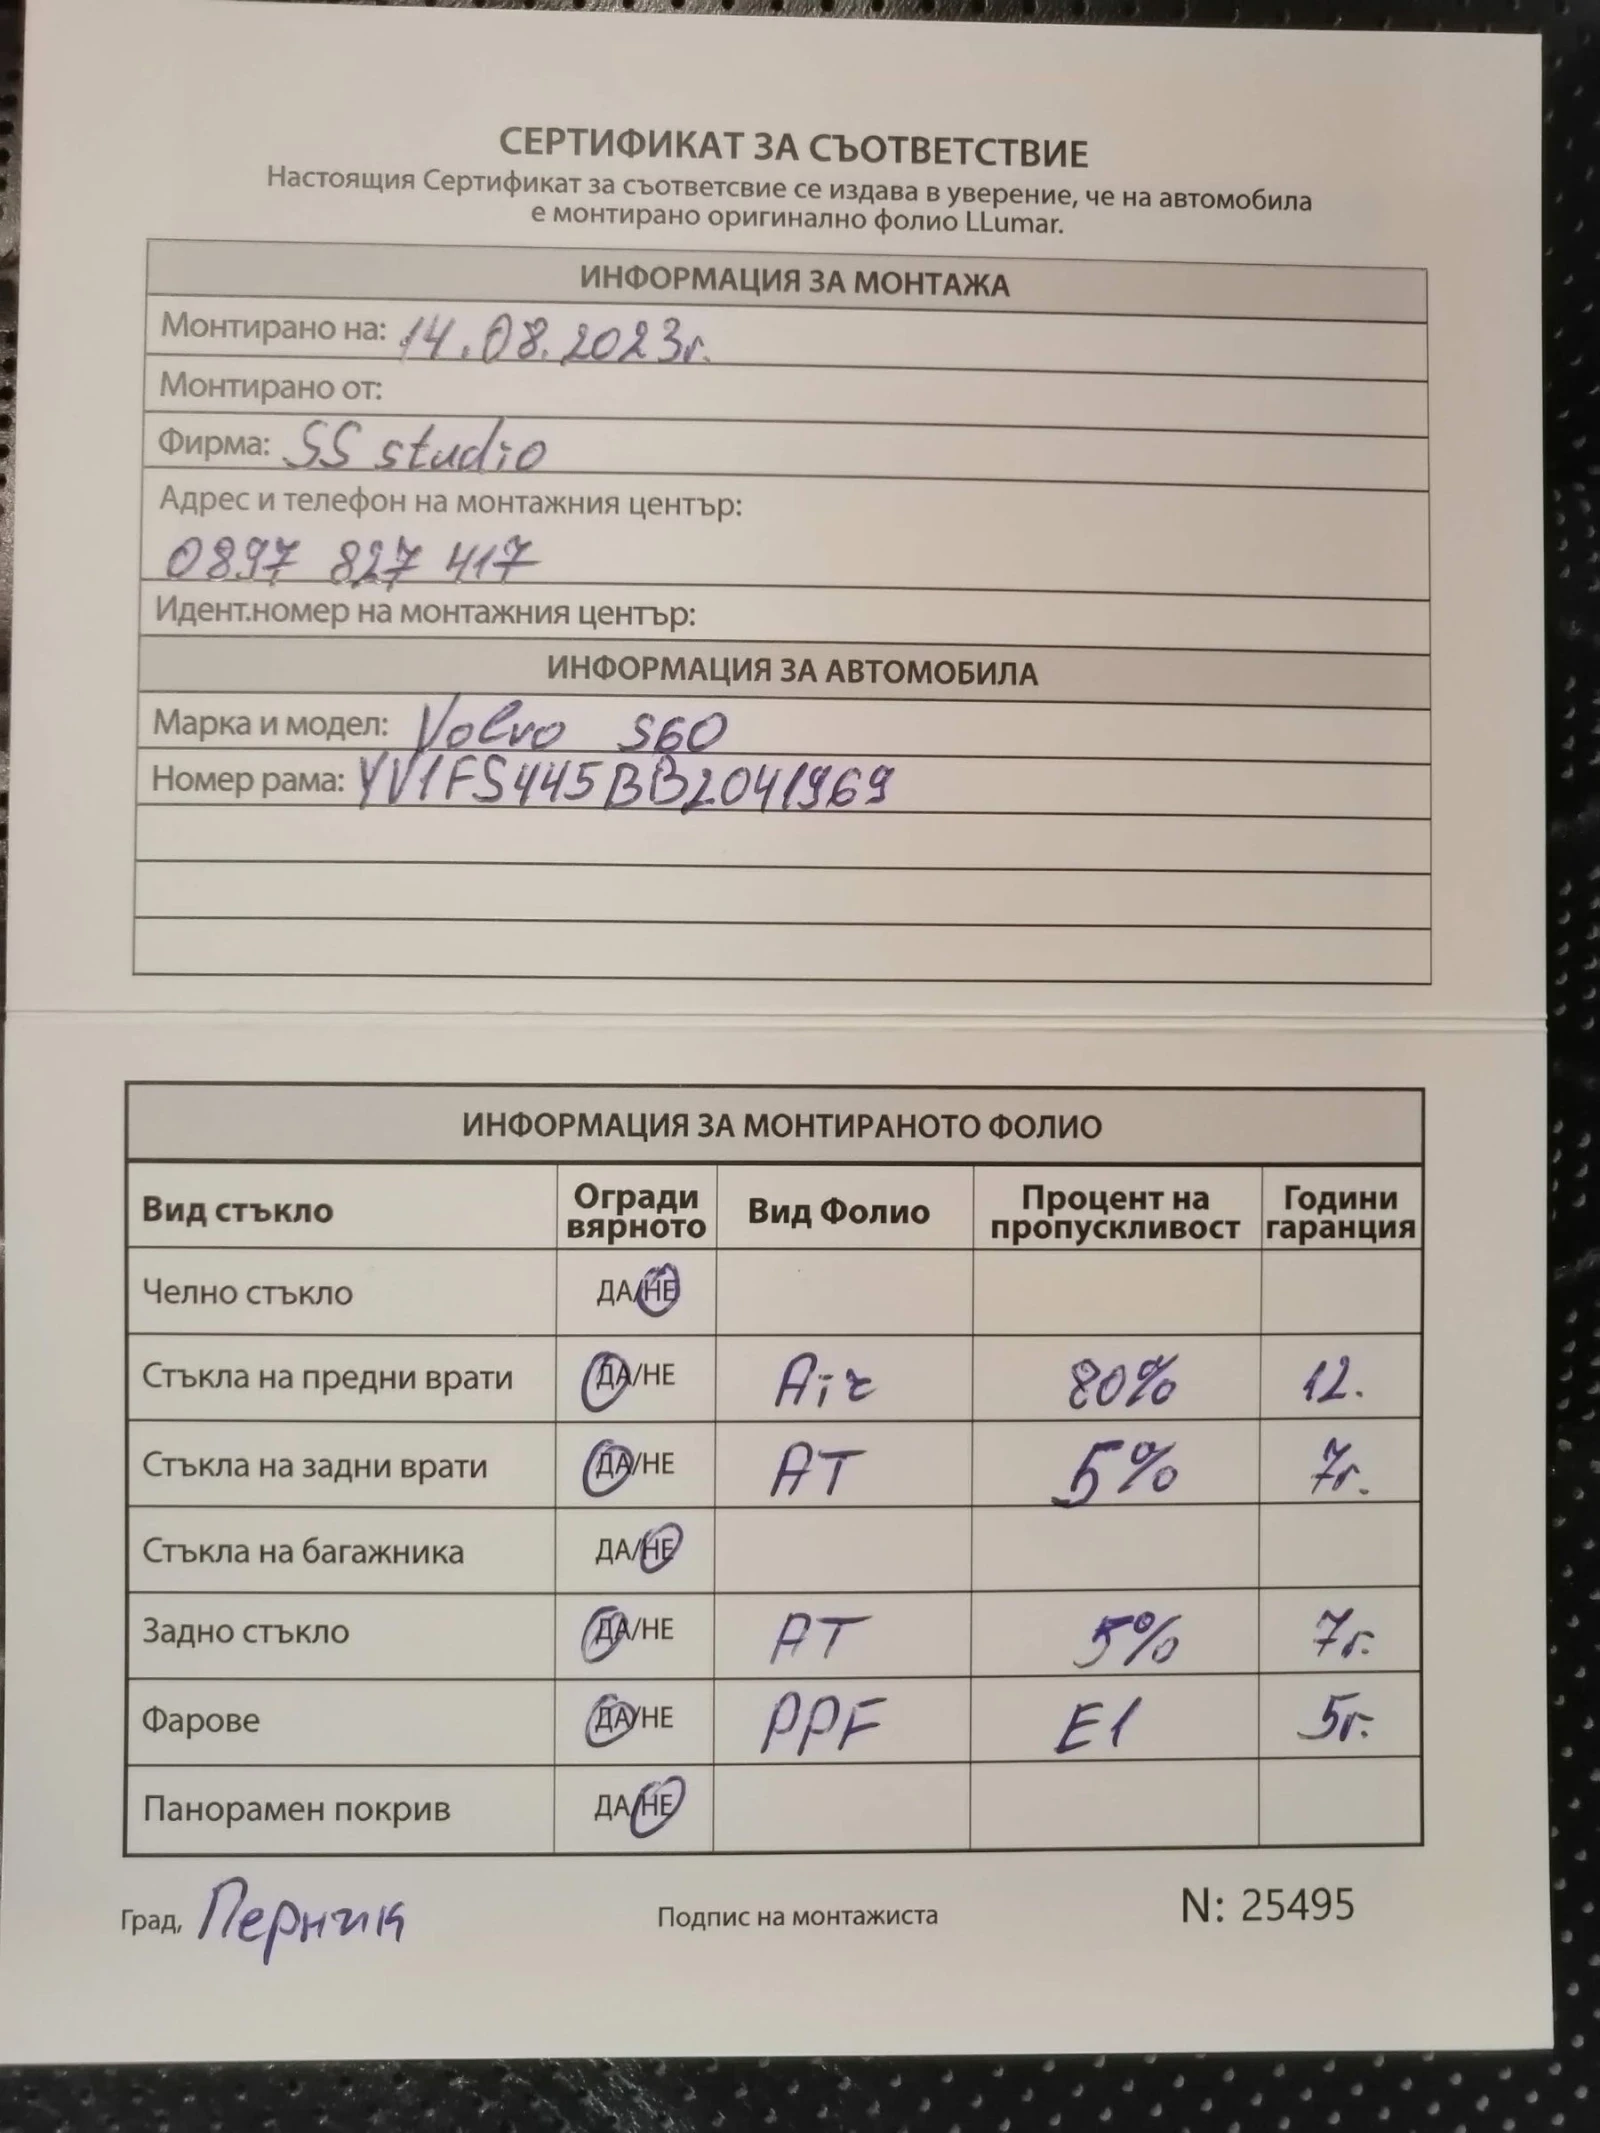 СЕРТИФИКАТ ЗА СЪОТВЕТСТВИЕ
Настоящия Сертификат за съответсвие се издава в уверение, че на автомобила
е монтирано оригинално фолио LLumar.
ИНФОРМАЦИЯ ЗА МОНТАЖА
Монтирано на: 14.08.2023г.
Монтирано от:
Фирма: SS studio
Адрес и телефон на монтажния център:
0897 827 417
Идент.номер на монтажния център:
ИНФОРМАЦИЯ ЗА АВТОМОБИЛА
Марка и модел: Volvo S60
Номер рама: YV1FS445BB2041969
ИНФОРМАЦИЯ ЗА МОНТИРАНОТО ФОЛИО
Вид стъкло Огради вярното Вид Фолио Процент на пропускливост Години гаранция
Челно стъкло ДА/НЕ
Стъкла на предни врати ДА/НЕ Air 80% 12.
Стъкла на задни врати ДА/НЕ AT 5% 7г.
Стъкла на багажника ДА/НЕ
Задно стъкло ДА/НЕ AT 5% 7г.
Фарове ДА/НЕ PPF E1 5г.
Панорамен покрив ДА/НЕ
Град, Перник Подпис на монтажиста N: 25495